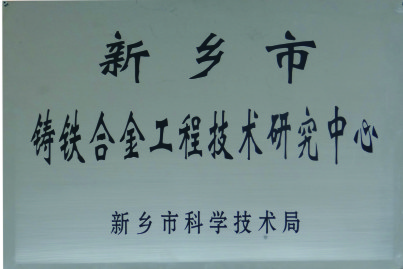 新乡市
铸铁合金工程技术研究中心
新乡市科学技术局